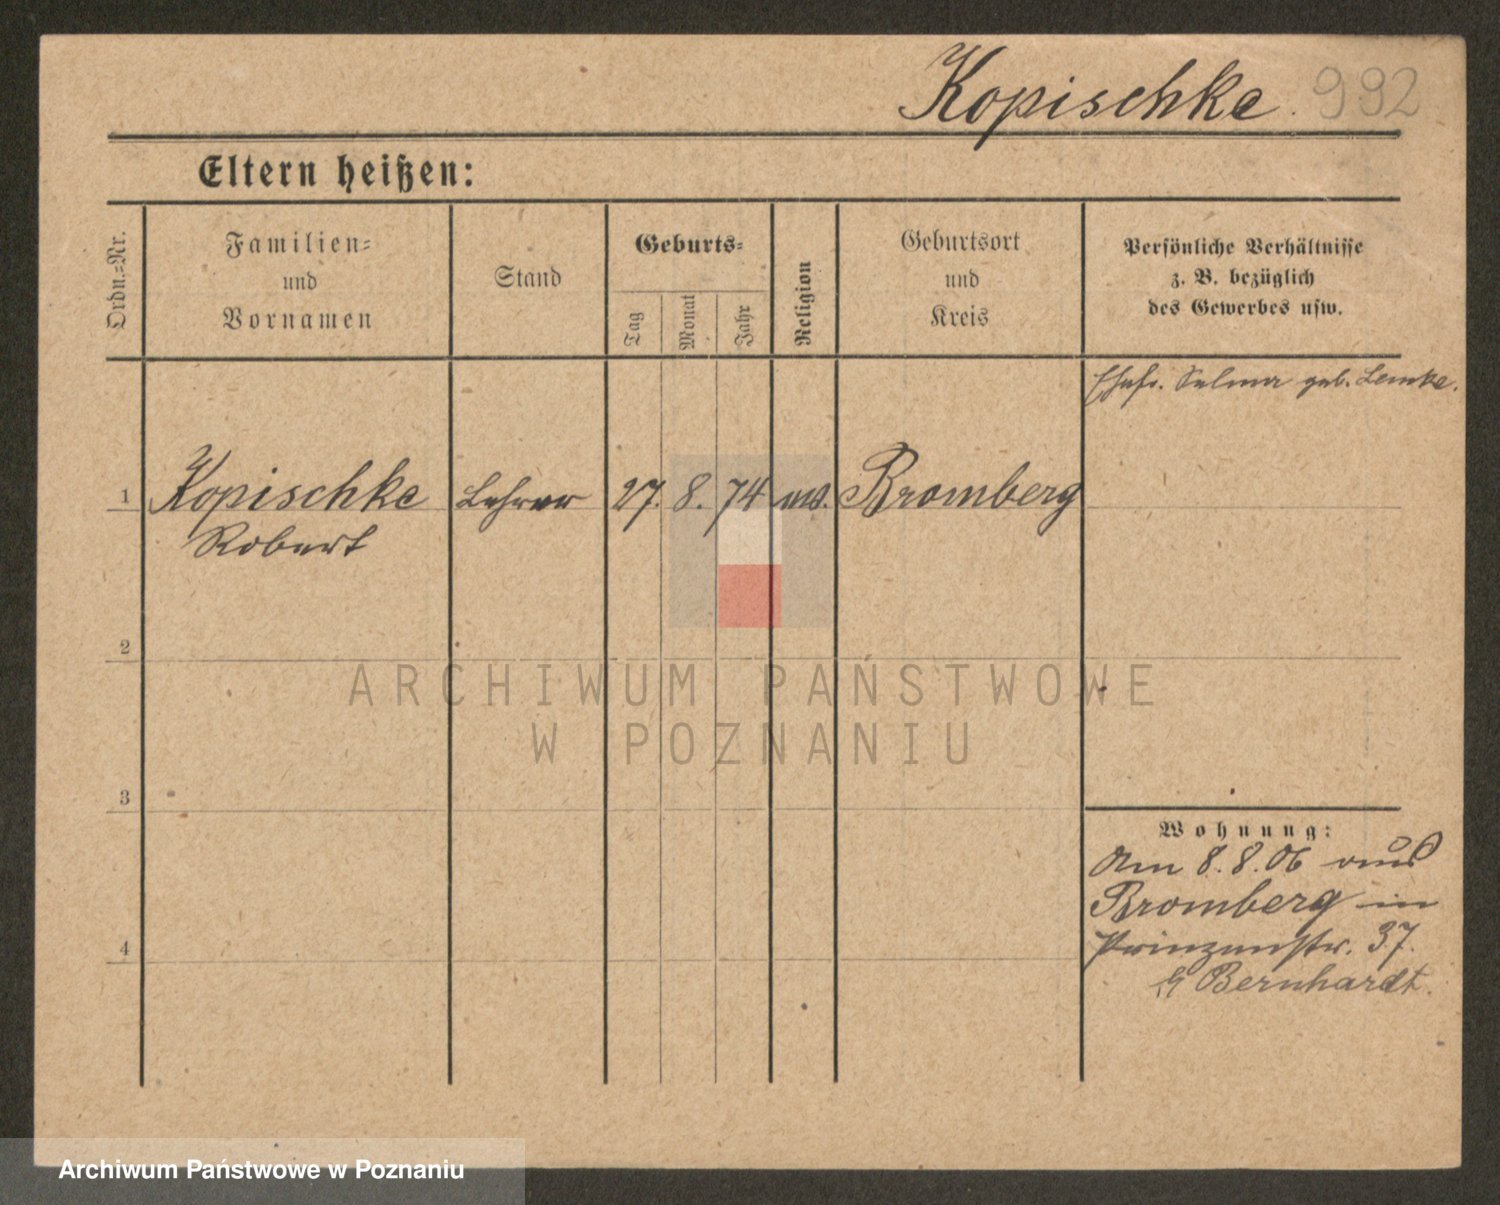 Kopischke. 992
Eltern heißen:
Ordn.=Nr.
Familien=
und
Vornamen
Stand
Geburts=
Tag
Monat
Jahr
Religion
Geburtsort
und
Kreis
Persönliche Verhältnisse
z. B. bezüglich
des Gewerbes usw.
Ehefr. Selma geb. Lemke.
1 Kopischke Lehrer 27. 8. 74 ev. Bromberg
Robert
2
3
4
Wohnung:
Am 8.8.06 aus
Bromberg in
Prinzenstr. 37.
Bernhardt.
ARCHIWUM PAŃSTWOWE
W POZNANIU
Archiwum Państwowe w Poznaniu